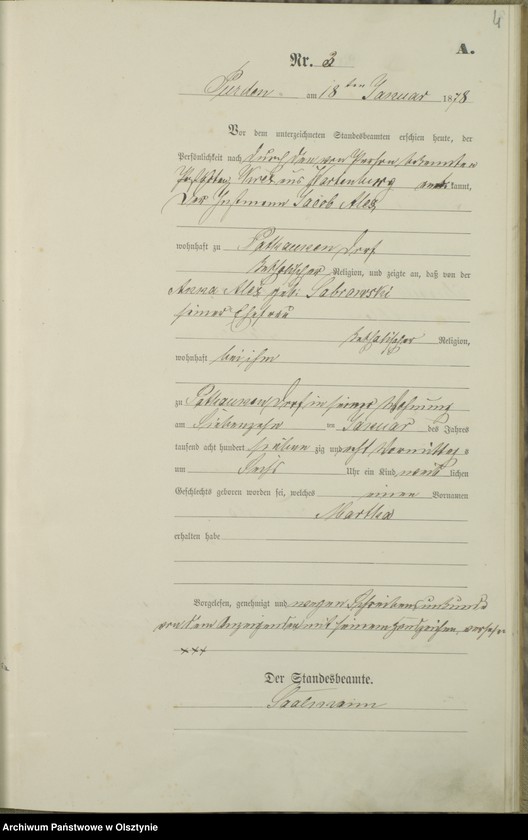 4
A.
Nr. 3
Purden am 18ten Januar 1878
Vor dem unterzeichneten Standesbeamten erschien heute, der
Persönlichkeit nach durch den von Person bekannten
Wirth aus Wartenburg kannt,
Der Instmann Jacob Alex
wohnhaft zu Pathaunen Dorf
katholischer Religion, und zeigte an, daß von der
Anna Alex geb. Sabrowski
seiner Ehefrau
katholischer Religion,
wohnhaft bei ihm
zu Pathaunen Dorf in seiner Wohnung
am Siebenzehn ten Januar des Jahres
tausend acht hundert sieben zig und acht Vormittags
um Sechs Uhr ein Kind weib lichen
Geschlechts geboren worden sei, welches einen Vornamen
Martha
erhalten habe
Vorgelesen, genehmigt und wegen Schreibensunkunde
von dem Anzeigenden mit seinem Handzeichen versehen
xxx
Der Standesbeamte.
Archiwum Państwowe w Olsztynie